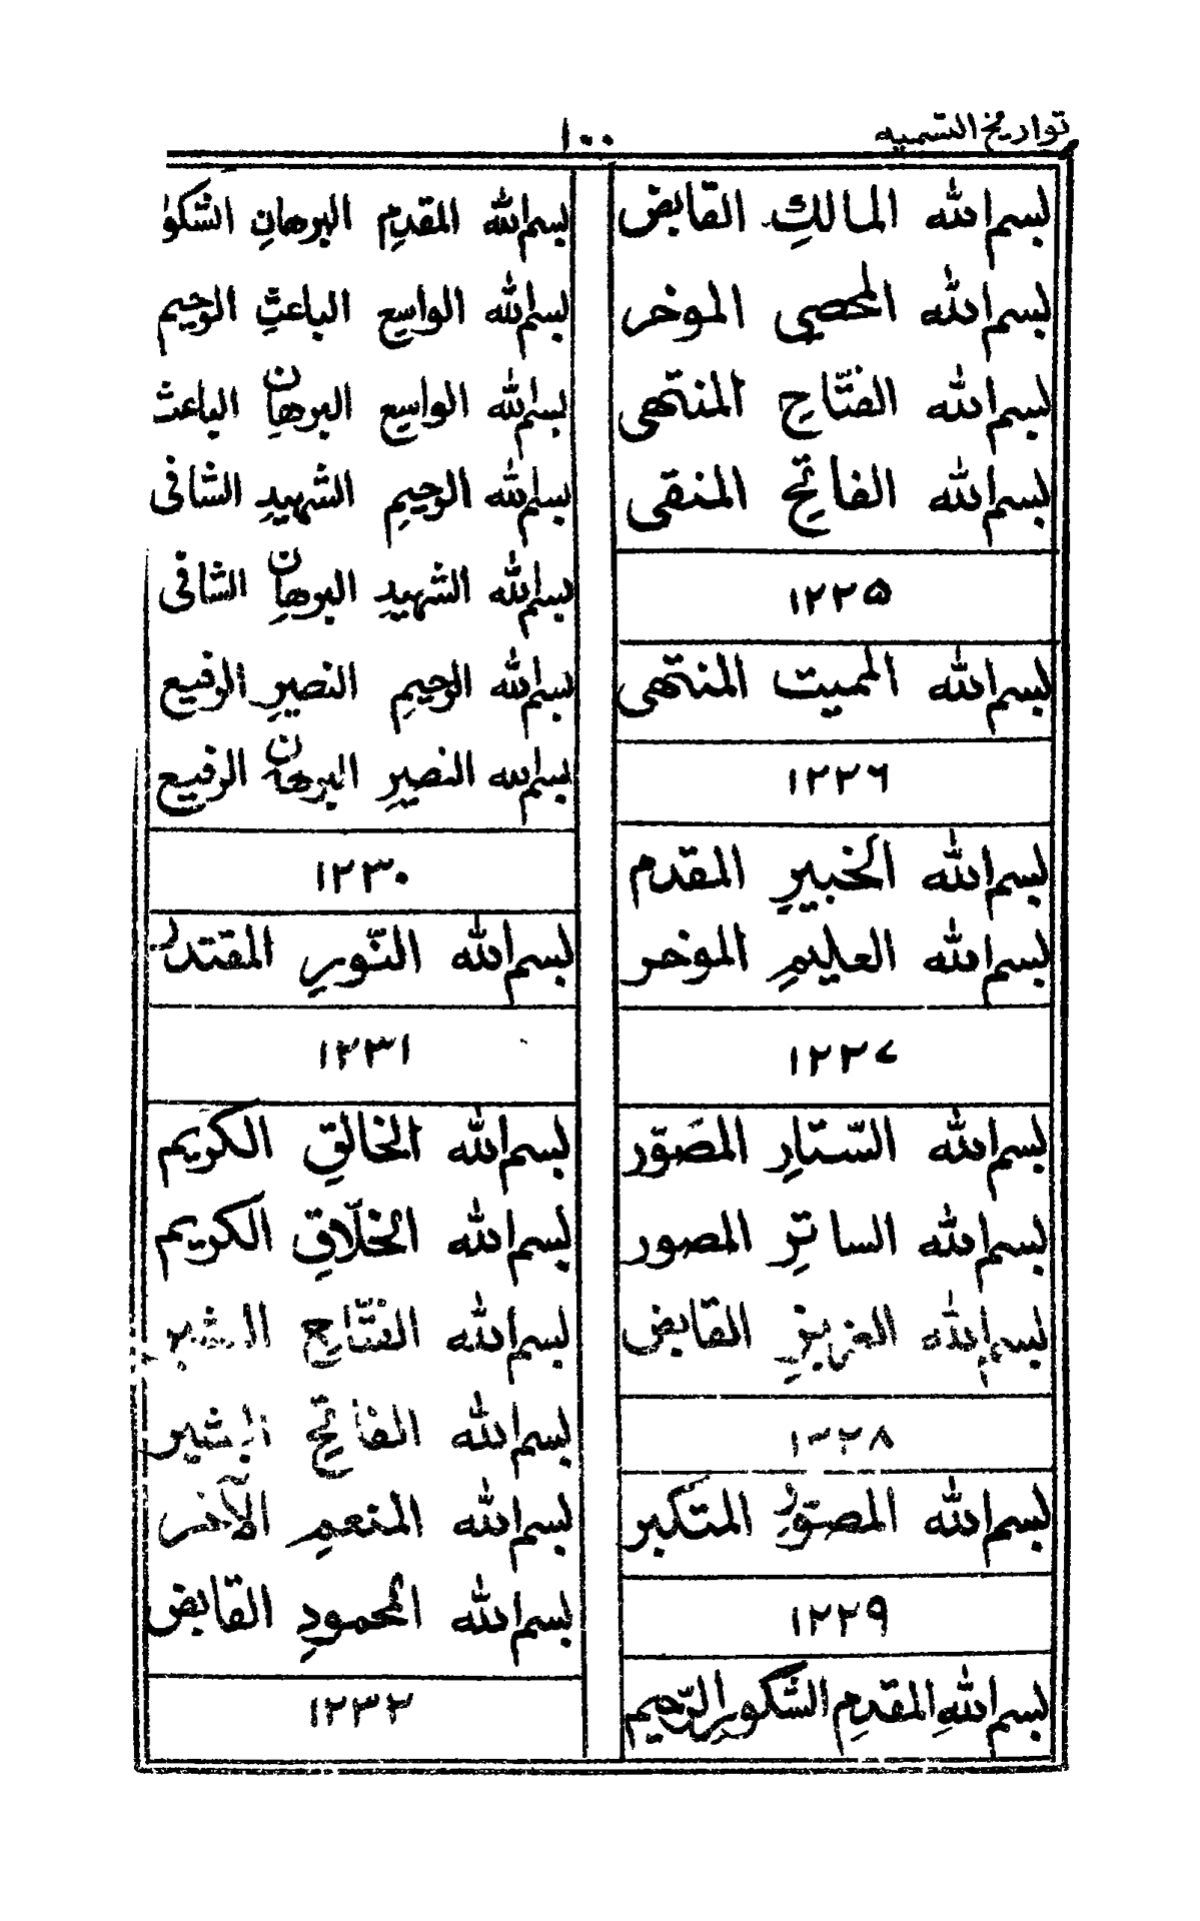 تواريخ التسميه
١٠٠
بسم الله المالكِ القابض
بسم الله المحصي الموخر
بسم الله الفتّاحِ المنتهى
بسم الله الفاتحِ المنقى
١٢٢٥
بسم الله المميت المنتهى
١٢٢٦
بسم الله الخبيرِ المقدم
بسم الله العليمِ الموخر
١٢٢٧
بسم الله السّتارِ المصَوّر
بسم الله الساترِ المصور
بسم الله العزيزِ القابض
١٢٢٨
بسم الله المصوّر المتكبر
١٢٢٩
بسم اللهِ المقدمِ الشكورِ الرّحيم
بسم الله المقدمِ البرهانِ الشكور
بسم الله الواسعِ الباعثِ الرحيم
بسم الله الواسع البرهانِ الباعث
بسم الله الرحيمِ الشهيدِ الشافى
بسم الله الشهيدِ البرهانِ الشافى
بسم الله الرحيمِ النصيرِ الرفيع
بسم الله النصيرِ البرهان الرفيع
١٢٣٠
بسم الله النّورِ المقتدر
١٢٣١
بسم الله الخالقِ الكريم
بسم الله الخلّاقِ الكريم
بسم الله الفتّاحِ
بسم الله الفاتحِ البشير
بسم الله المنعمِ الآخر
بسم الله المحمودِ القابض
١٢٣٢